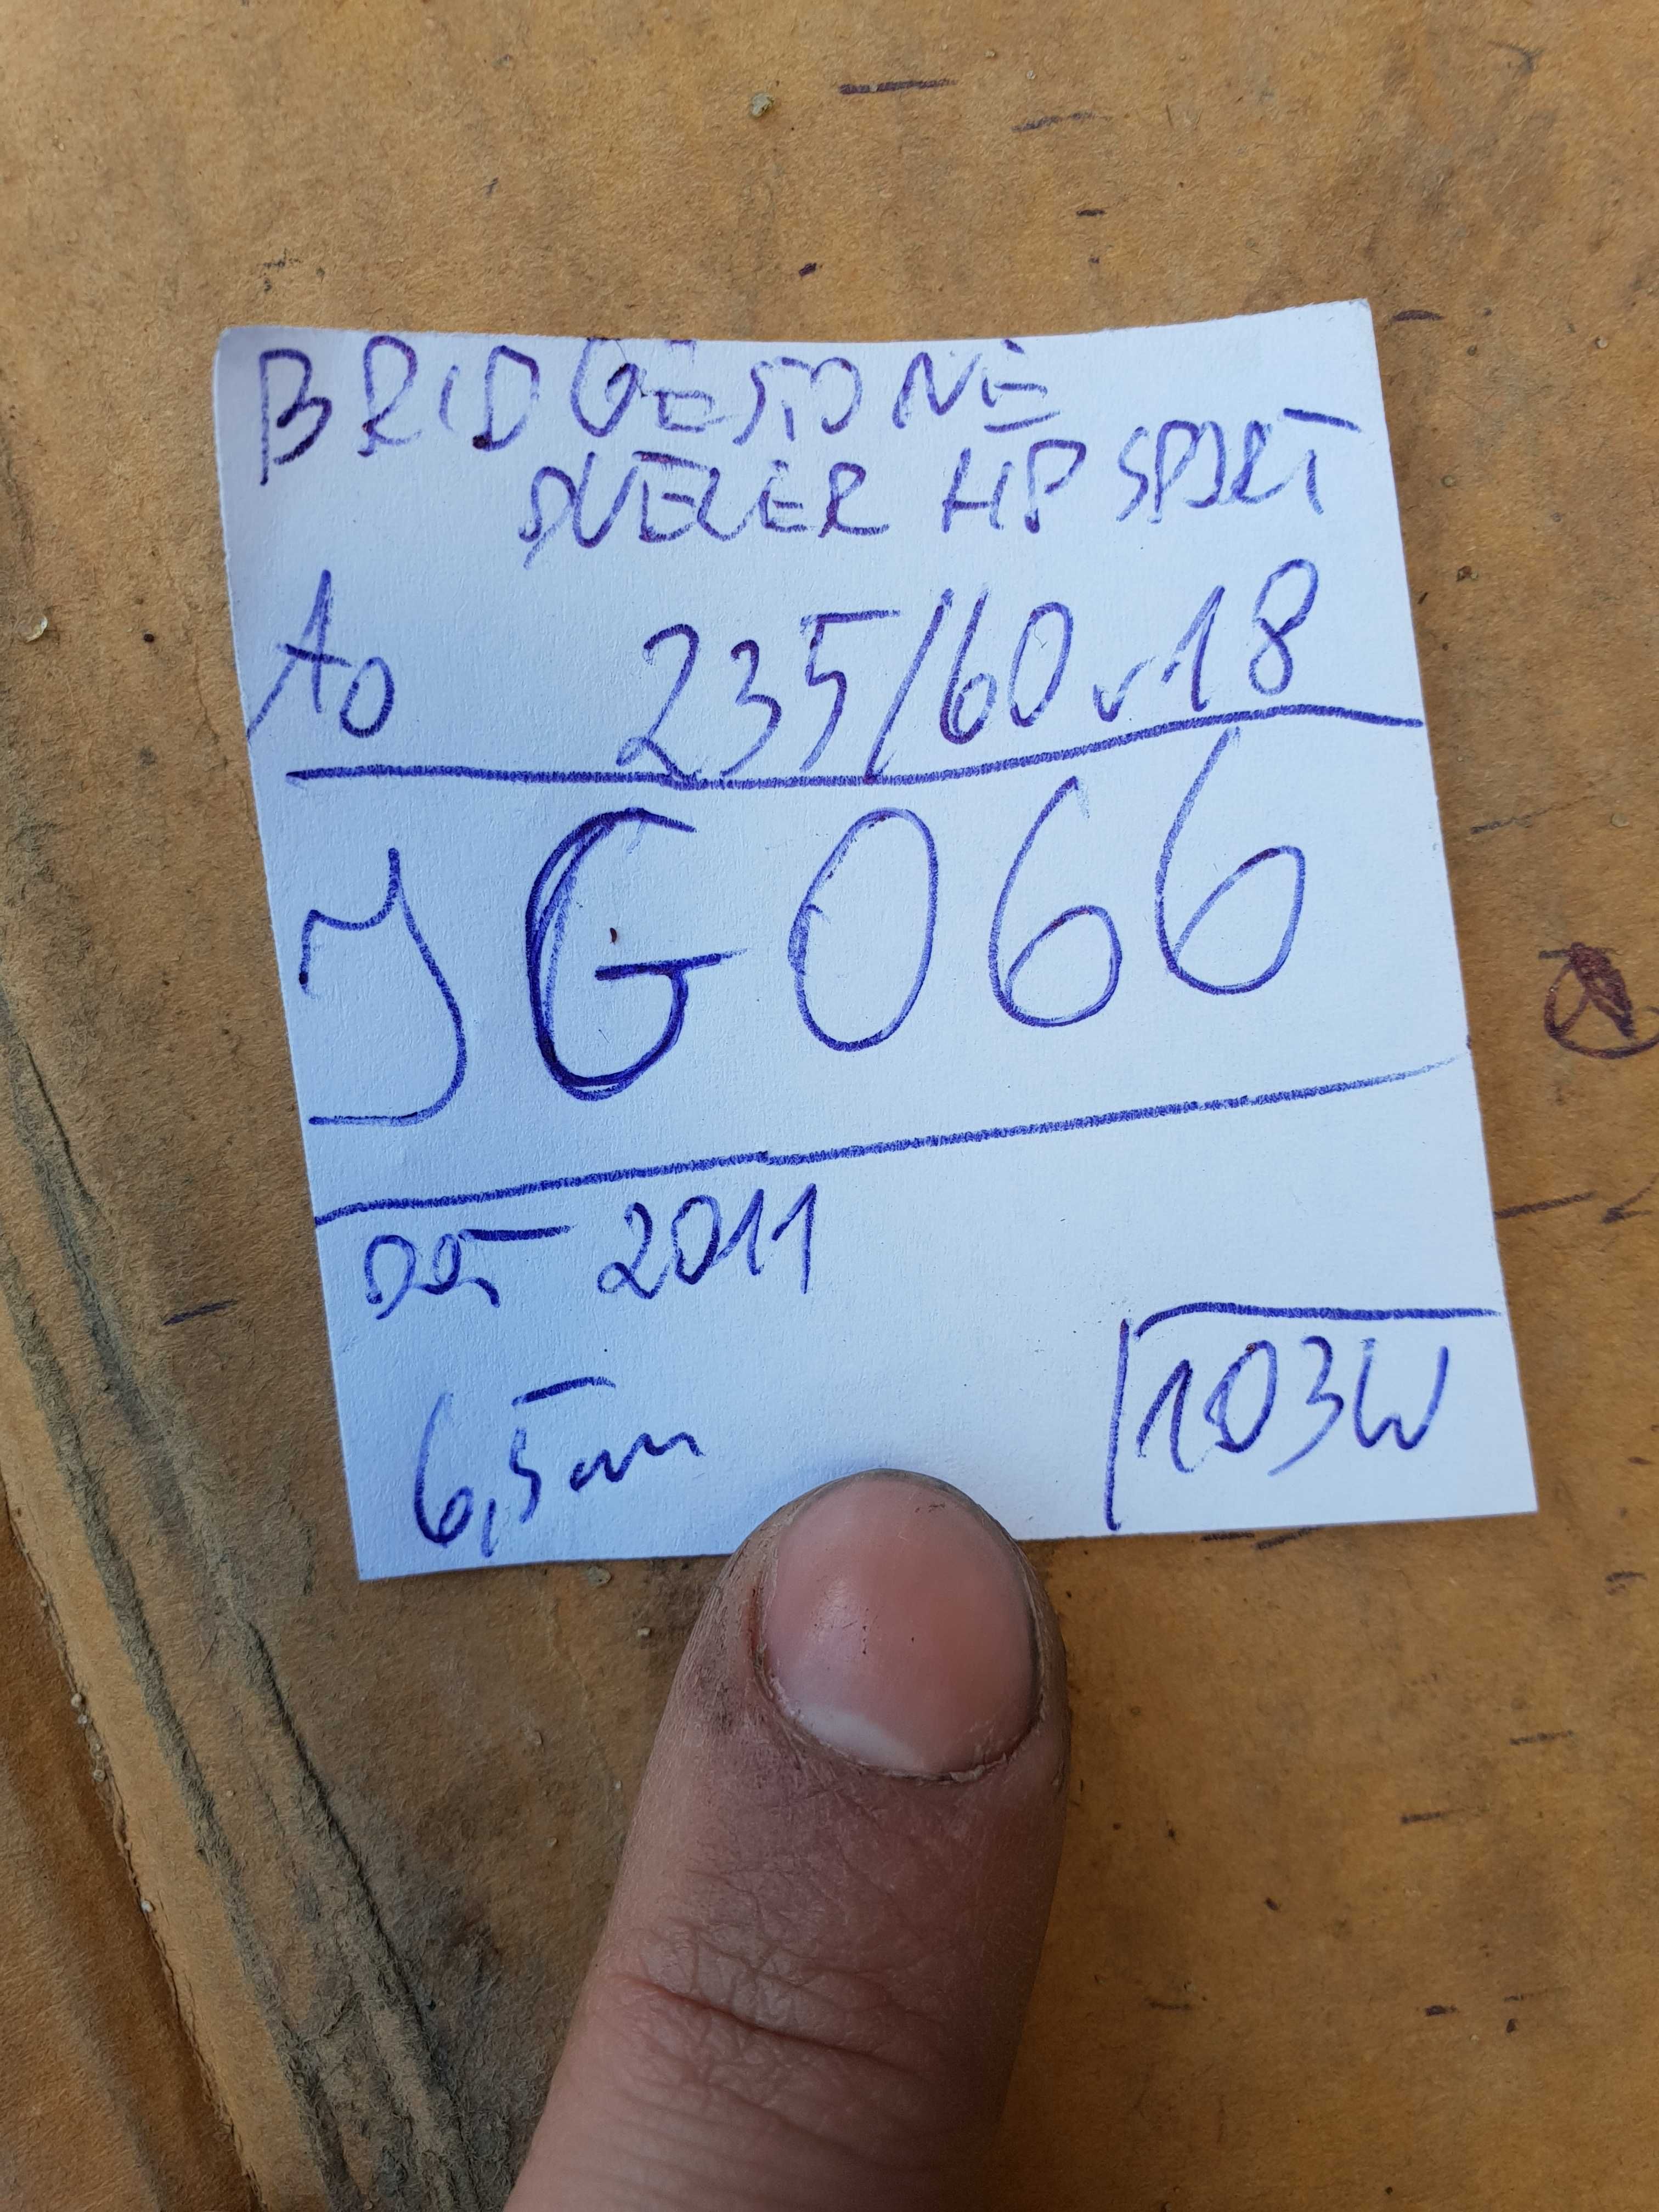 BRIDGESTONE
DUELER HP SPORT
AO 235/60 r18
JG066
DOT 2011
6,5mm
103W